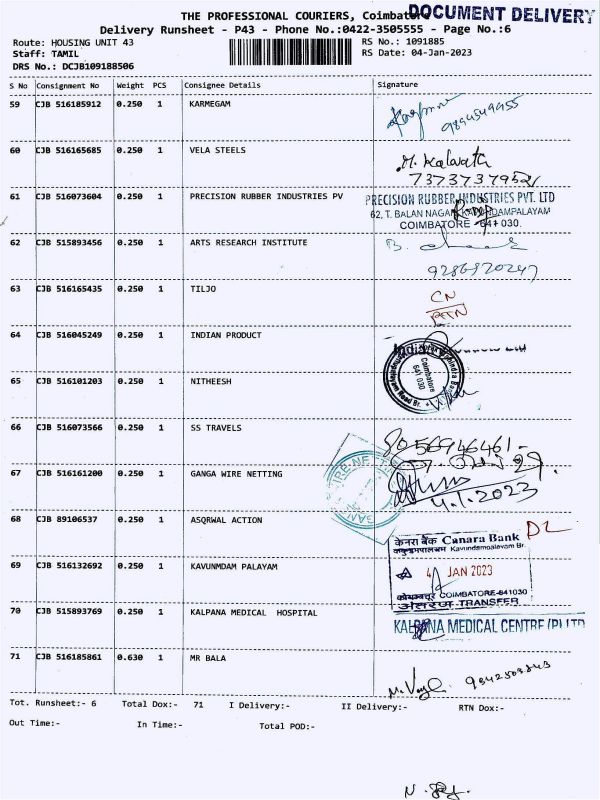 THE PROFESSIONAL COURIERS, Coimbatore
DOCUMENT DELIVERY
Delivery Runsheet - P43 - Phone No.:0422-3505555 - Page No.:6
Route: HOUSING UNIT 43 RS No.: 1091885
Staff: TAMIL RS Date: 04-Jan-2023
DRS No.: DCJB109188506
S No Consignment No Weight PCS Consignee Details Signature
59 CJB 516185912 0.250 1 KARMEGAM
9894549955
60 CJB 516165685 0.250 1 VELA STEELS
7373737952
61 CJB 516073604 0.250 1 PRECISION RUBBER INDUSTRIES PV
PRECISION RUBBER INDUSTRIES PVT. LTD
62, T. BALAN NAGAR
COIMBATORE - 641 030.
62 CJB 515893456 0.250 1 ARTS RESEARCH INSTITUTE
63 CJB 516165435 0.250 1 TILJO
CN
64 CJB 516045249 0.250 1 INDIAN PRODUCT
Coimbatore
641 030
65 CJB 516101203 0.250 1 NITHEESH
66 CJB 516073566 0.250 1 SS TRAVELS
8056946461-
67 CJB 516161200 0.250 1 GANGA WIRE NETTING
4.1.2023
68 CJB 89106537 0.250 1 ASQRWAL ACTION
केनरा बैंक Canara Bank
Kavundampalayam Br.
69 CJB 516132692 0.250 1 KAVUNMDAM PALAYAM
4 JAN 2023
COIMBATORE-641030
अंतरण TRANSFER
70 CJB 515893769 0.250 1 KALPANA MEDICAL HOSPITAL
KALPANA MEDICAL CENTRE (P) LTD
71 CJB 516185861 0.630 1 MR BALA
Tot. Runsheet:- 6 Total Dox:- 71 I Delivery:- II Delivery:- RTN Dox:-
Out Time:- In Time:- Total POD:-